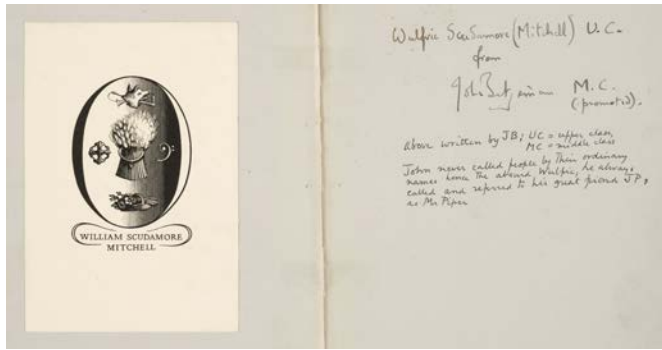 WILLIAM SCUDAMORE
MITCHELL
Wulfric Scudamore (Mitchell) U.C.
from
John Betjeman M.C.
(promoted).
Above written by JB; UC = upper class,
MC = middle class
John never called people by their ordinary
names hence the absurd Wulfric, he always
called and referred to his great friend JP,
as Mr Piper